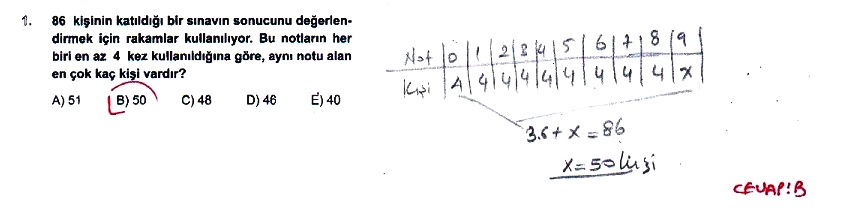 1. 86 kişinin katıldığı bir sınavın sonucunu değerlen-
dirmek için rakamlar kullanılıyor. Bu notların her
biri en az 4 kez kullanıldığına göre, aynı notu alan
en çok kaç kişi vardır?
A) 51 B) 50 C) 48 D) 46 E) 40
Not 0 1 2 3 4 5 6 7 8 9
Kişi 4 4 4 4 4 4 4 4 4 x
3.6 + x = 86
x = 50 kişi
CEVAP: B